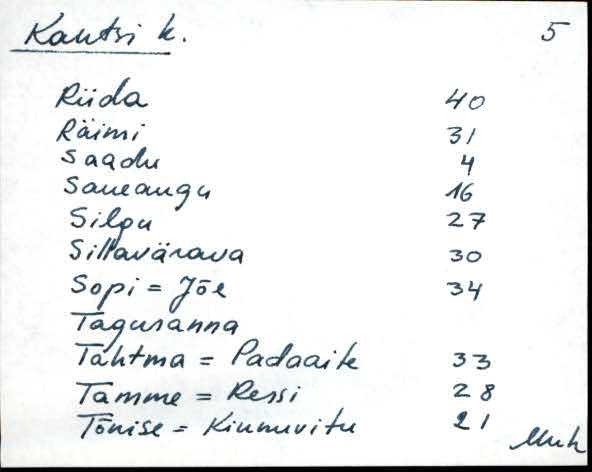 Kantsi k. 5
Riida 40
Räimi 31
Saadu 4
Saueaugu 16
Silgu 27
Sillavärava 30
Sopi = Jõe 34
Taguranna
Tahtma = Padaaite 33
Tamme = Ressi 28
Tõnise = 21
Muh